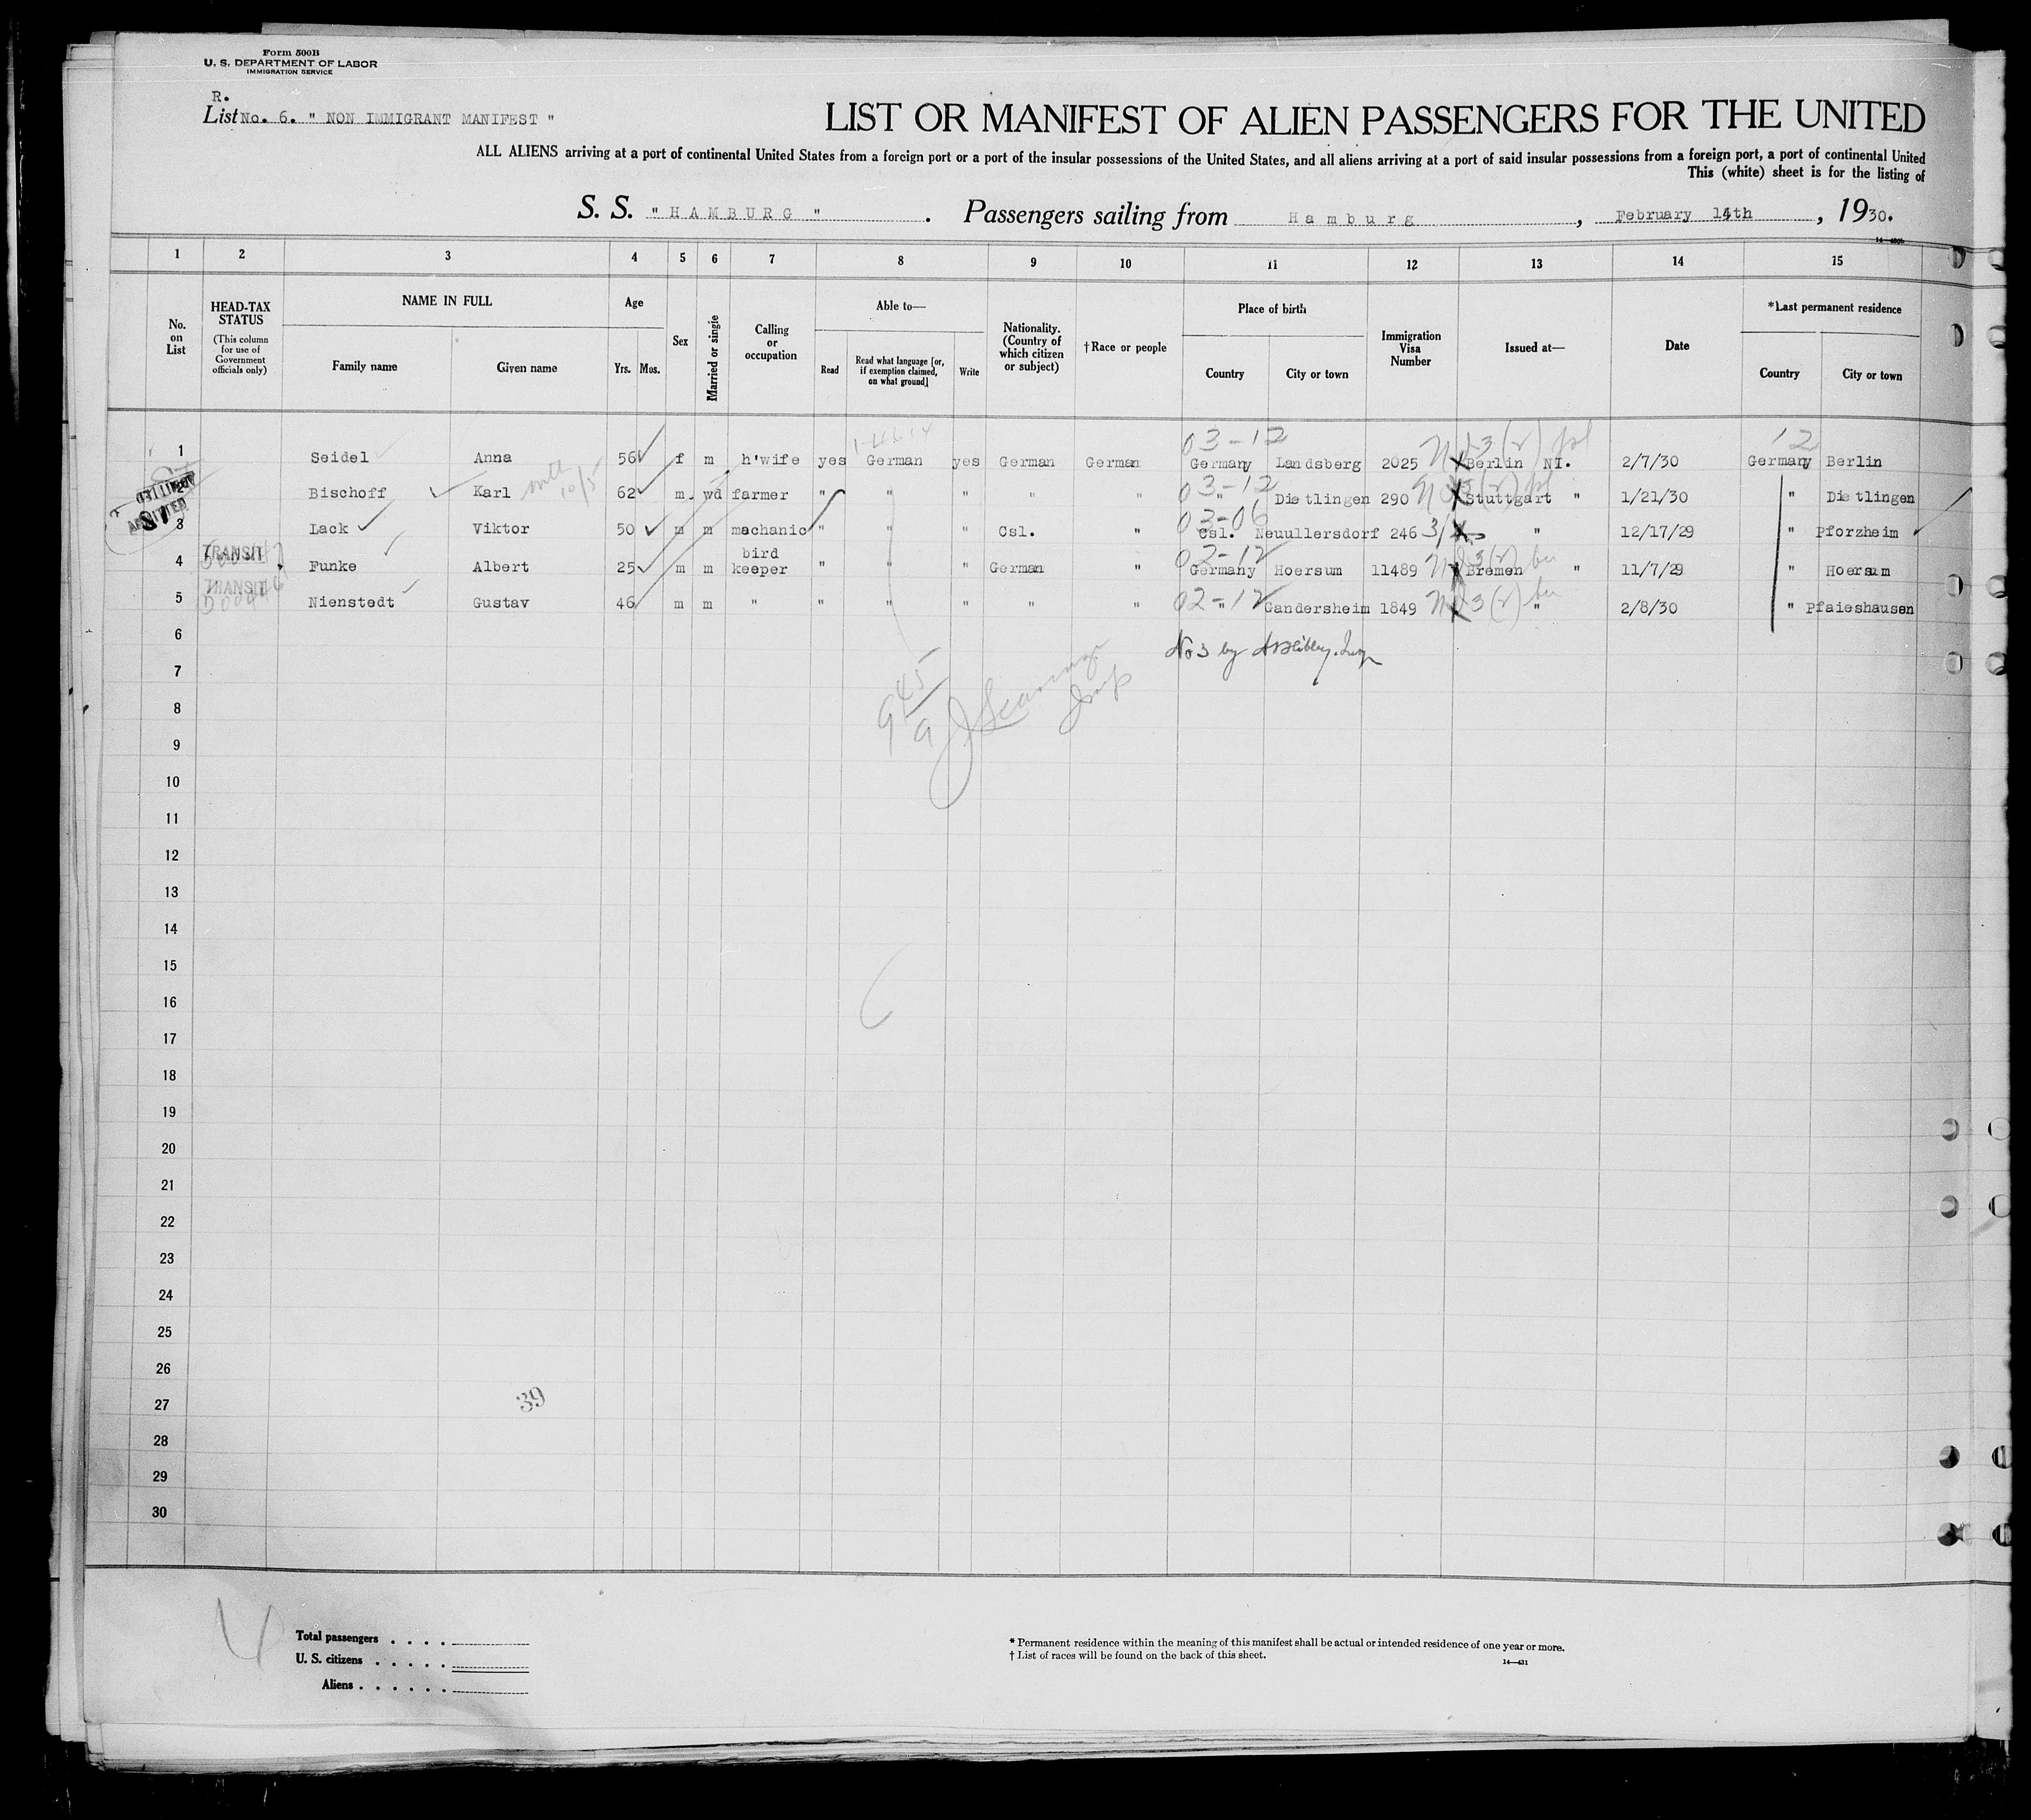 Form 500B
U. S. DEPARTMENT OF LABOR
IMMIGRATION SERVICE
R.
List No. 6. " NON IMMIGRANT MANIFEST "
LIST OR MANIFEST OF ALIEN PASSENGERS FOR THE UNITED
ALL ALIENS arriving at a port of continental United States from a foreign port or a port of the insular possessions of the United States, and all aliens arriving at a port of said insular possessions from a foreign port, a port of continental United
This (white) sheet is for the listing of
S. S. " HAMBURG " . Passengers sailing from Hamburg , February 14th , 1930.
1 2 3 4 5 6 7 8 9 10 11 12 13 14 15
No. on List
HEAD-TAX STATUS (This column for use of Government officials only)
NAME IN FULL Family name Given name
Age Yrs. Mos.
Sex
Married or single
Calling or occupation
Able to— Read Read what language [or, if exemption claimed, on what ground] Write
Nationality. (Country of which citizen or subject)
†Race or people
Place of birth Country City or town
Immigration Visa Number
Issued at—
Date
*Last permanent residence Country City or town
03-12 12
1 Seidel Anna 56 f m h'wife yes German yes German German Germany Landsberg 2025 Berlin NI. 2/7/30 Germany Berlin
03-12
ADMITTED Bischoff Karl 62 m wd farmer " " " " " " Dietlingen 290 Stuttgart " 1/21/30 " Dietlingen
03-06
ADMITTED 3 Lack Viktor 50 m m machanic " " " Csl. " Csl. Neuullersdorf 246 " 12/17/29 " Pforzheim
TRANSIT 02-12
4 Funke Albert 25 m m bird keeper " " " German " Germany Hoersum 11489 Bremen " 11/7/29 " Hoersum
TRANSIT 02-12
5 Nienstedt Gustav 46 m m " " " " " " " Gandersheim 1849 " 2/8/30 " Pfaieshausen
6
No 3 by
7
945
8
9
10
11
12
13
14
15
16
17
18
19
20
21
22
23
24
25
26
27
39
28
29
30
Total passengers . . . .
U. S. citizens . . . . .
Aliens . . . . . .
* Permanent residence within the meaning of this manifest shall be actual or intended residence of one year or more.
† List of races will be found on the back of this sheet.
14—431